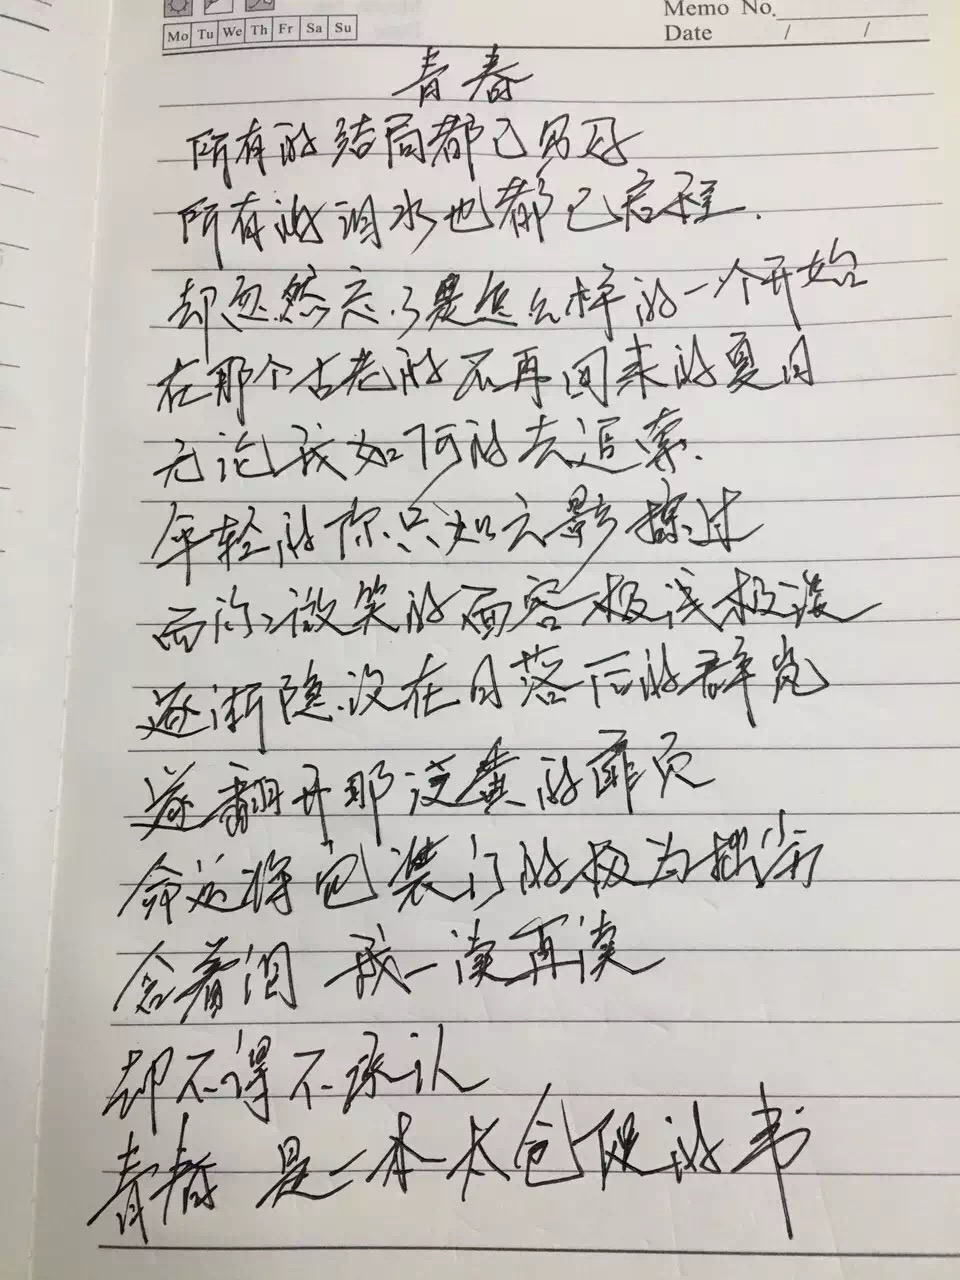 Mo Tu We Th Fr Sa Su
Memo No.
Date / /
青春
所有的结局都已写好
所有的泪水也都已启程.
却忽然忘了是怎么样的一个开始
在那个古老的不再回来的夏日
无论我如何的去追索.
年轻的你只如云影掠过
而你微笑的面容极浅极淡
逐渐隐没在日落后的群岚
遂翻开那泛黄的扉页
命运将它装订的极为拙劣
含着泪 我一读再读
却不得不承认
青春是一本太仓促的书